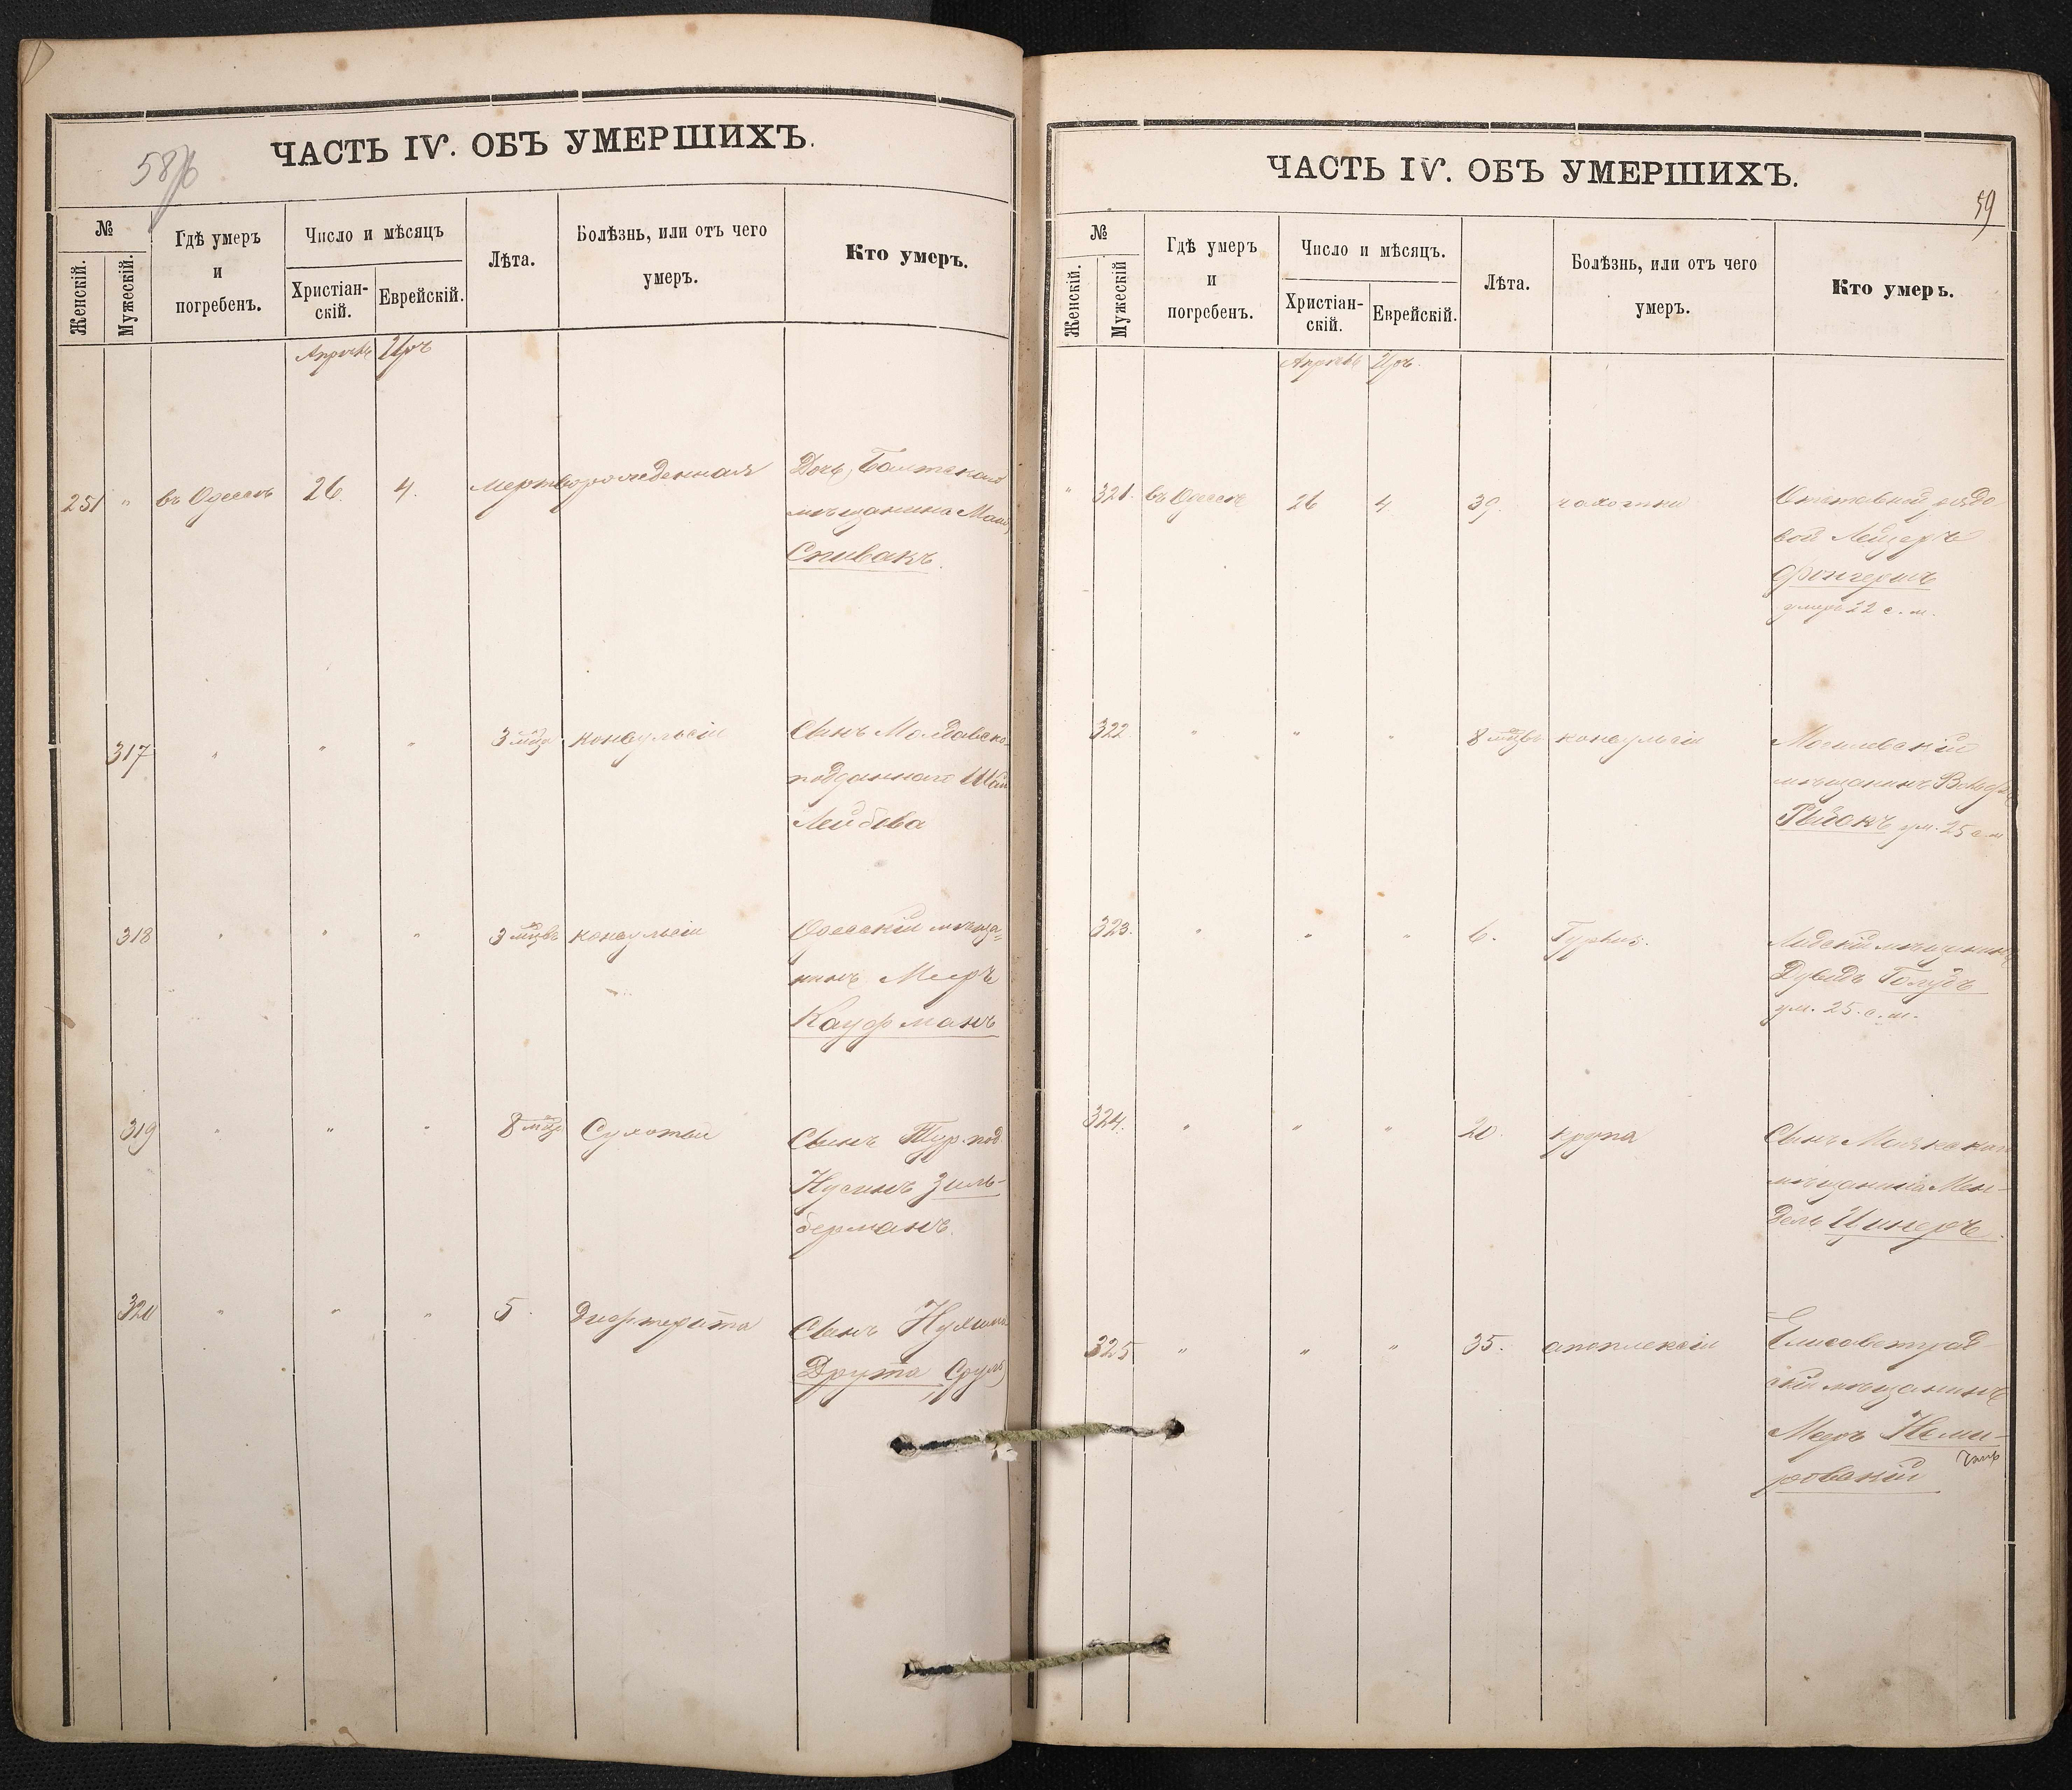 58
ЧАСТЬ IV. ОБЪ УМЕРШИХЪ.
№
Женскій.
Мужескій.
Гдѣ умеръ
и
погребенъ.
Число и мѣсяцъ
Христіан-
скій.
Еврейскій.
Лѣта.
Болѣзнь, или отъ чего
умеръ.
Кто умеръ.
Апрѣль Іръ
251 " въ Одессѣ 26. 4. мертворожденная Дочь Балтскаго
мѣщанина
Спивакъ.
317 " " " 3 мца конвульсіи Сынъ Молдавско
подданнаго
Лейбова
318 " " " 3 мцвъ конвульсіи Одесскій мѣща-
нинъ Мееръ
Кауфманъ
319 " " " 8 Сухотки Сынъ Тур. под
Нусинъ Зиль-
берманъ.
320 " " " 5. дифтерита Сынъ Нухима
Друта Сруль
ЧАСТЬ IV. ОБЪ УМЕРШИХЪ.
59
№
Женскій.
Мужескій
Гдѣ умеръ
и
погребенъ.
Число и мѣсяцъ.
Христіан-
скій.
Еврейскій.
Лѣта.
Болѣзнь, или отъ чего
умеръ.
Кто умеръ.
Апрѣль Іръ.
" 321. въ Одессѣ 26 4 39. чахотки рядо-
вой Лейзеръ
умеръ 22 с. м.
322 " " " 8 мцвъ конвульсіи Могилевскій
мѣщанинъ Вольфъ
ум. 25 с. м
323. " " " 6. Лидскій мѣщанинъ
Дувидъ Голубъ
ум. 25. с. м.
324. " " " 20 крупа Сынъ
мѣщанина Мен-
дель Циперъ.
325 " " " 35. апоплексіи Елисаветград-
скій мѣщанинъ
Мееръ Неми-
ровскій